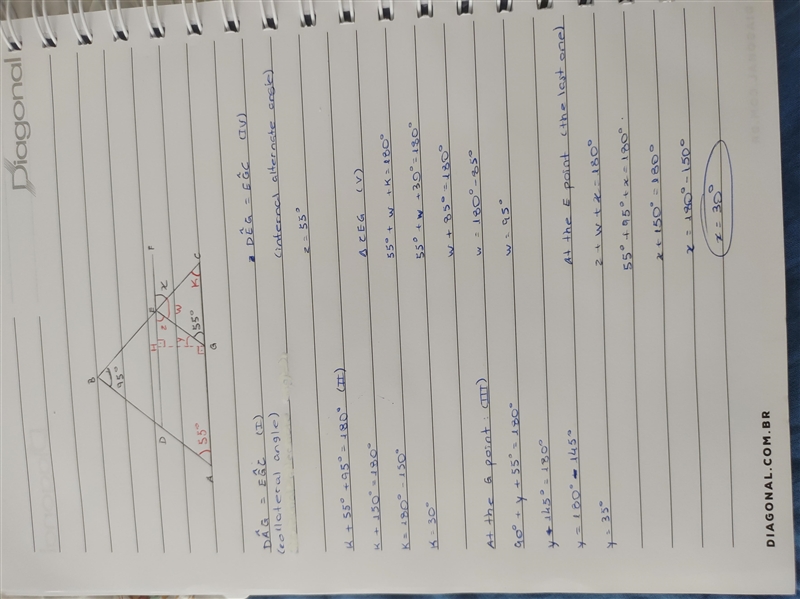 Diagonal
B
95°
D
H
E
F
z
x
y
w
K
C
A
55°
55°
G
DÂG = EĜC (I)
(collateral angle)
K + 55° + 95° = 180° (II)
K + 150° = 180°
K = 180° - 150°
K = 30°
At the G point: (III)
90° + y + 55° = 180°
y + 145° = 180°
y = 180° - 145°
y = 35°
DÊG = EĜC (IV)
(internal alternate angle)
z = 55°
Δ CEG (V)
55° + w + K = 180°
55° + w + 30° = 180°
w + 85° = 180°
w = 180° - 85°
w = 95°
At the E point (the last one)
z + w + x = 180°
55° + 95° + x = 180°.
x + 150° = 180°
x = 180° - 150°
x = 30°
DIAGONAL.COM.BR